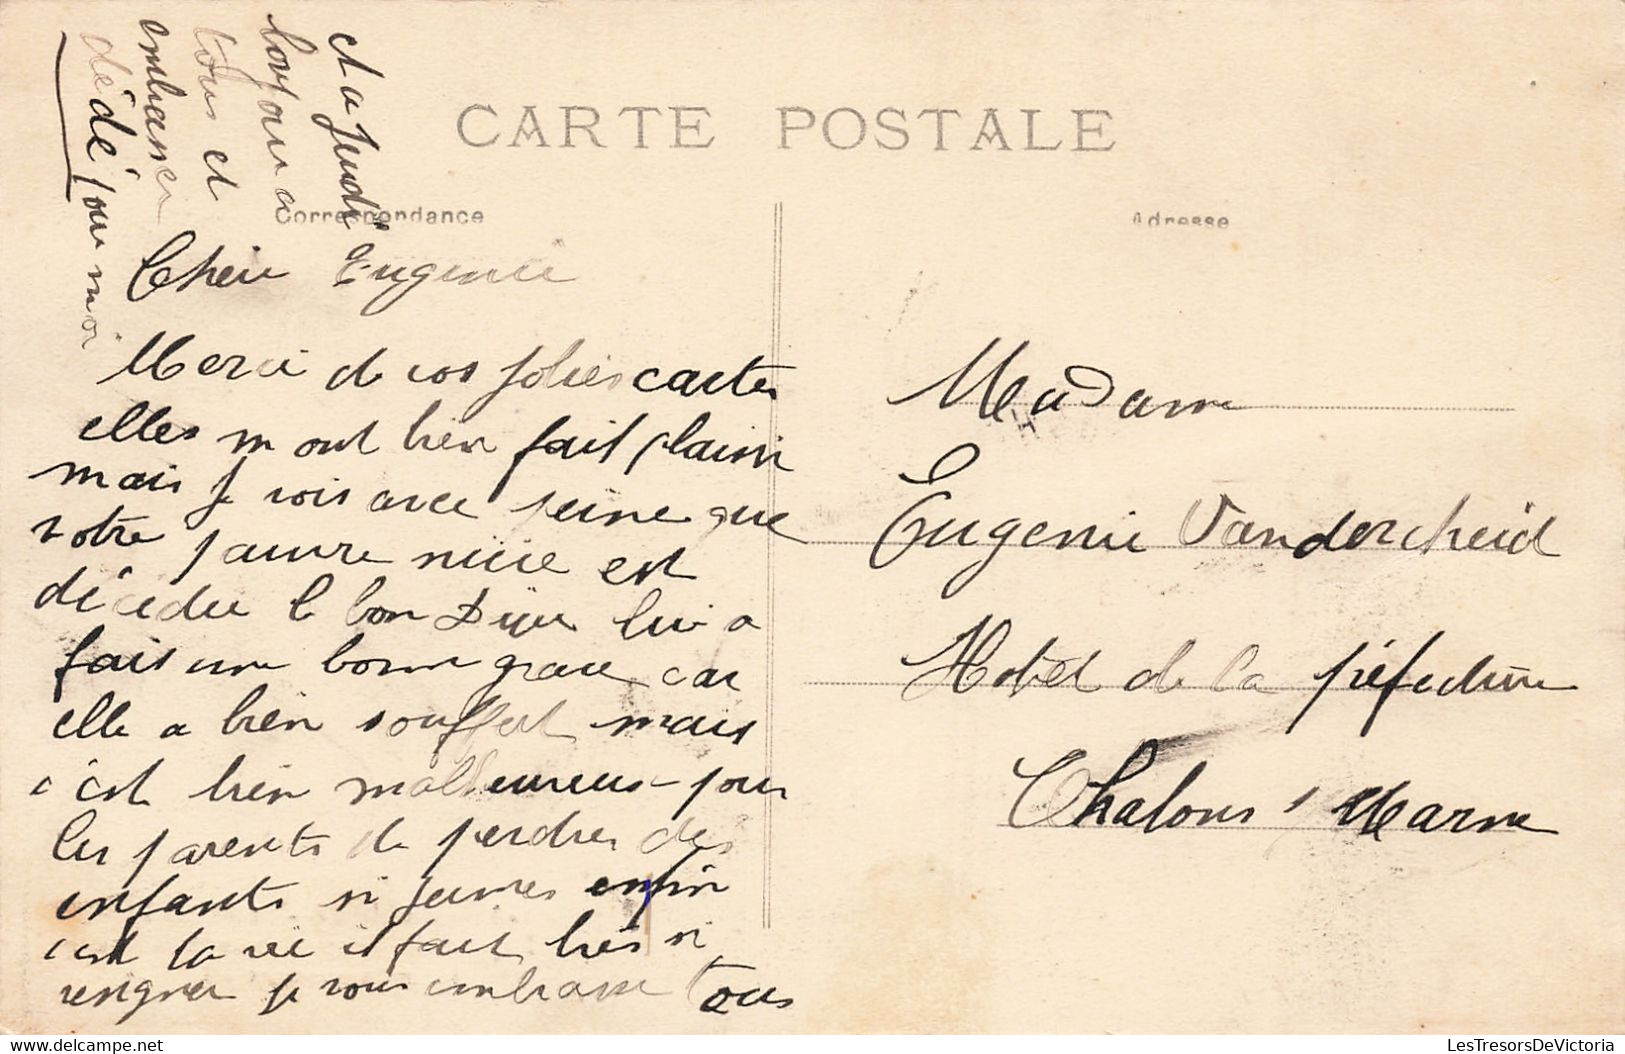 CARTE POSTALE
Correspondance
Adresse
Cheie Eugenie
Merci de vos jolies cartes
elles m ont bien fait plaisir
mais je vois avec peine que
votre pauvre niece est
décédée le bon Dieu lui a
fais une bonne grace car
elle a bien souffert mais
c'est bien malheureus pour
les parents de perdres des
enfants si jeunes enfin
c'est la vie il faut bien si
resigner je vous embrasse tous
et a Jeudi
bonjour a
tous et
embrasser
dédé pour moi
Madame
Eugenie Vandercheid
Hotel de la préfecture
Chalons s/ Marne
www.delcampe.net
LesTresorsDeVictoria